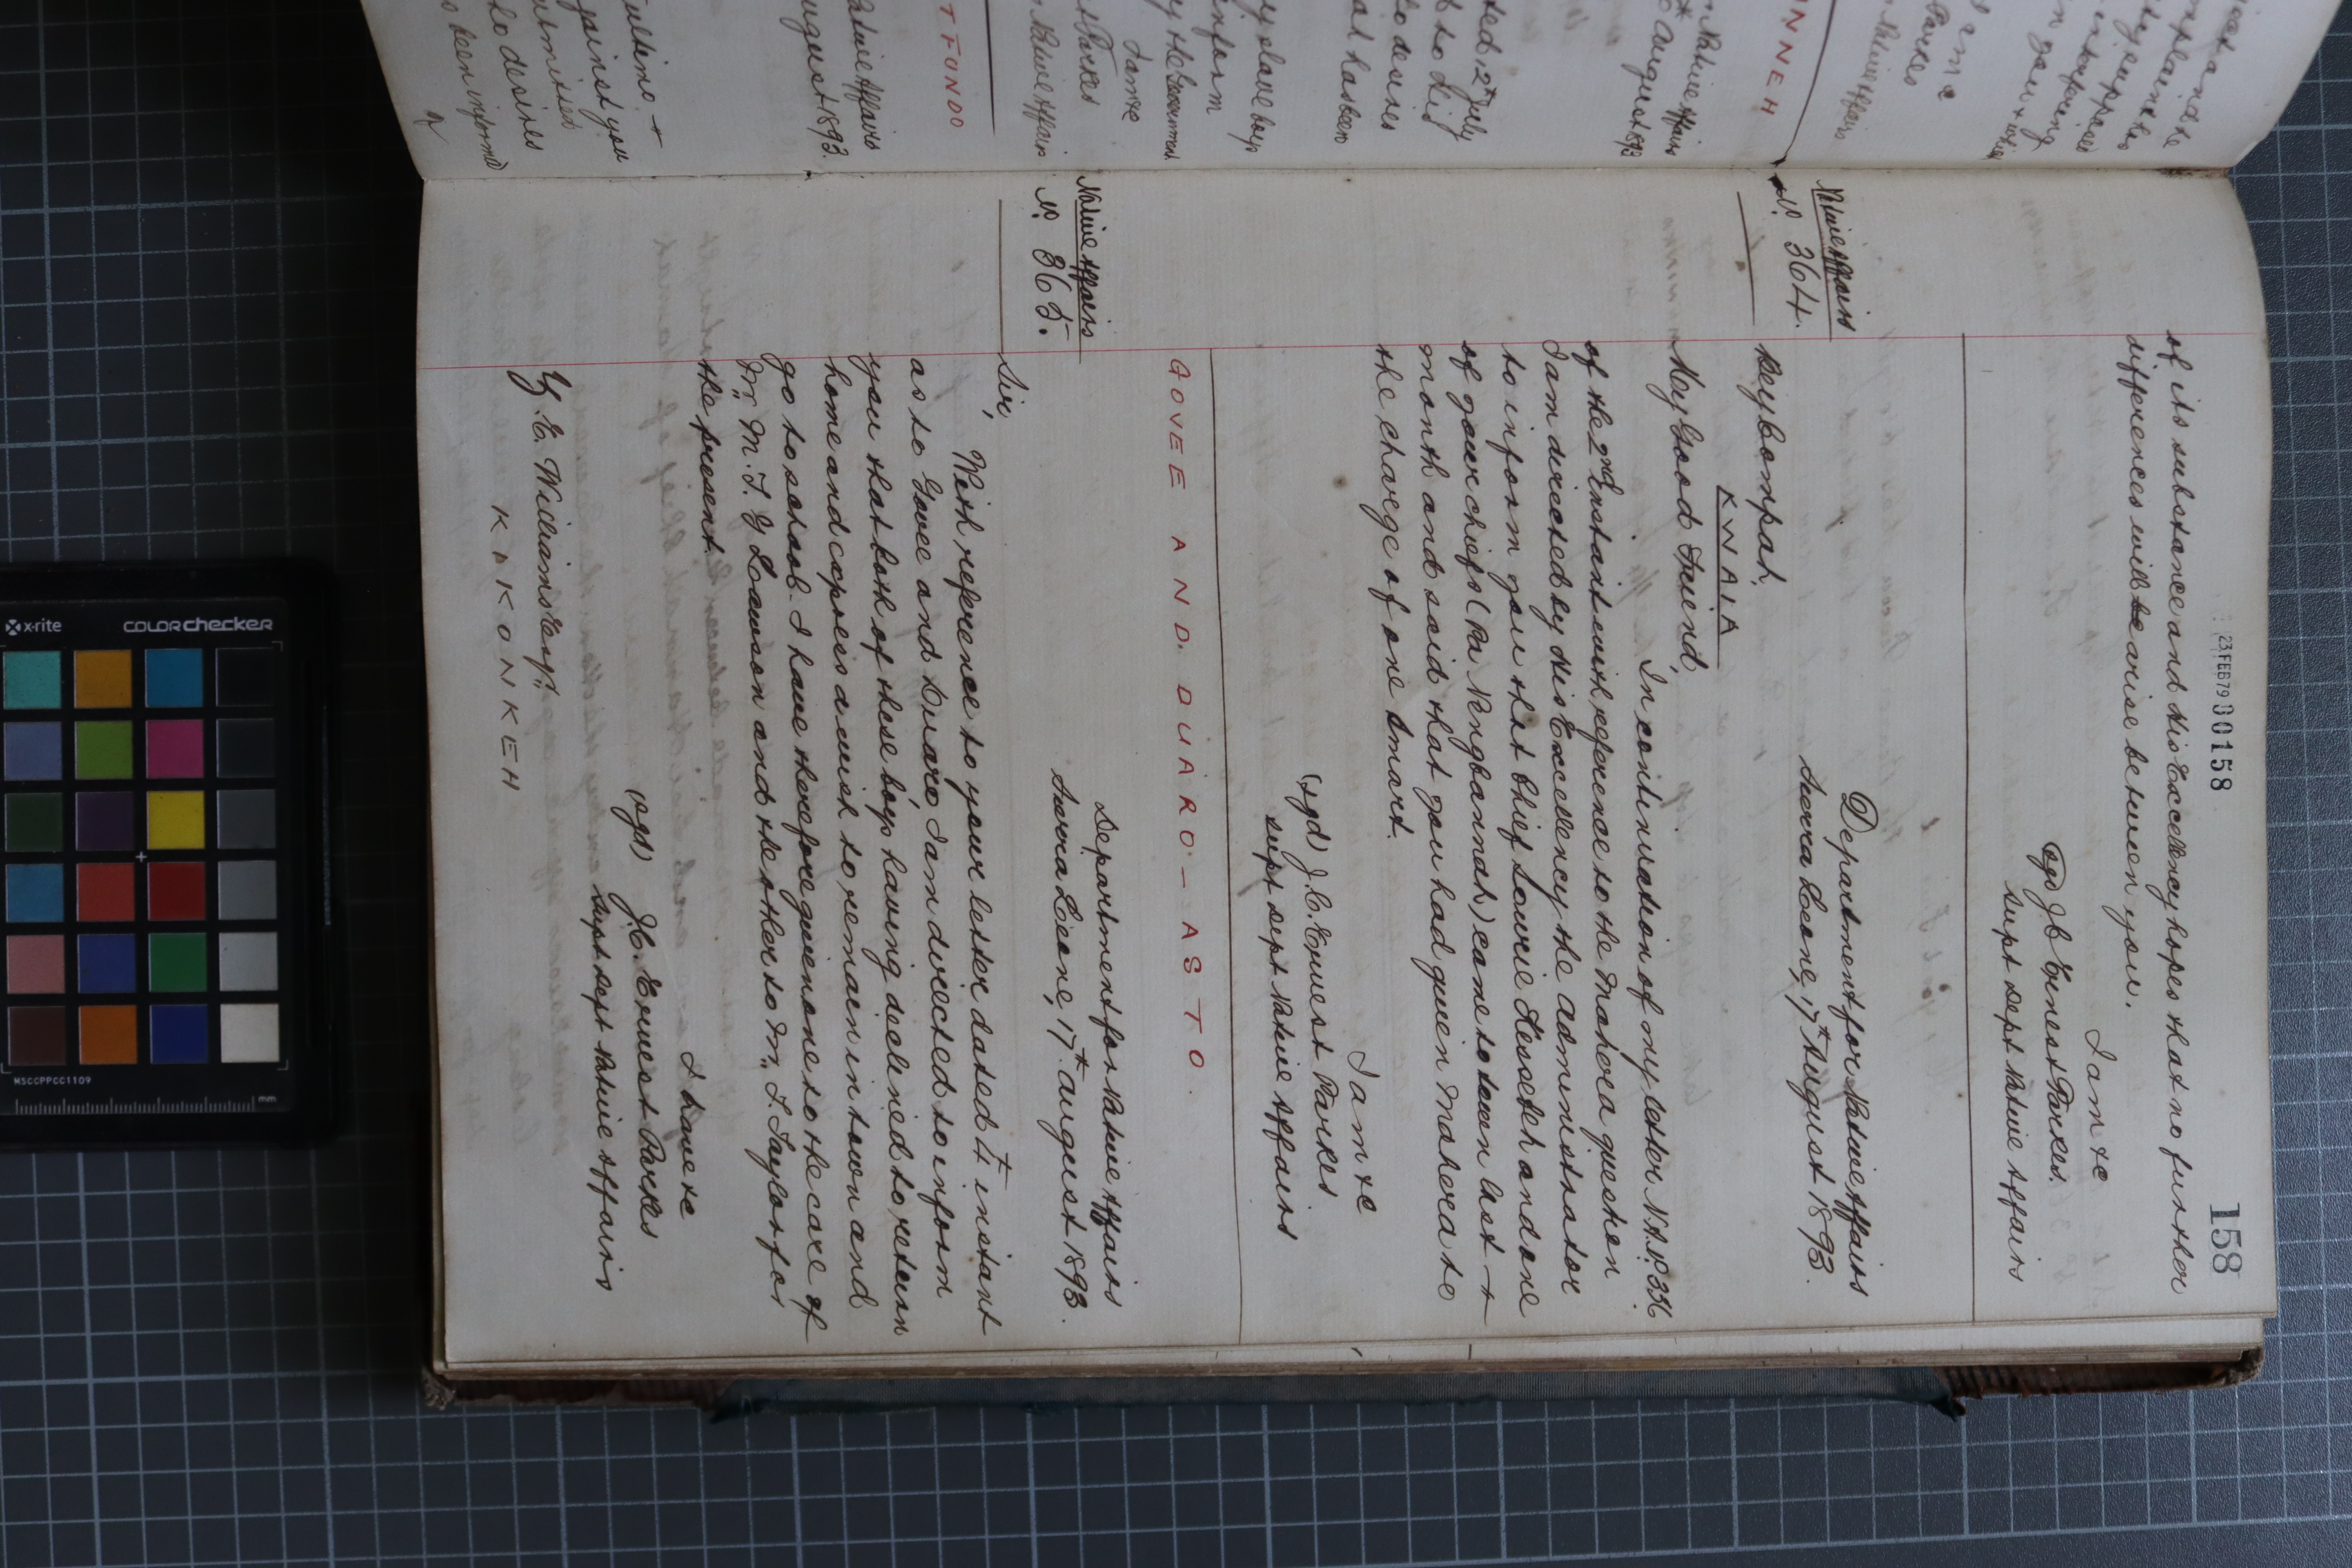 23 FEB 79 00158
158
of its substance and His Excellency hopes that no further
differences will be arise between you.
I am &c
(sgd) J C Ernest Parkes.
Supt Dept Native Affairs
Native Affairs
No. 364.
Department for Native Affairs
Sierra Leone, 17th August 1893.
Beybompah.
KWAIA
My Good Friend,
In continuation of my letter N.A. No. 336
of the 2nd Instant with reference to the Mahera question
I am directed by His Excellency the Administrator
to inform you that Chief Sowrie Kessebeh and one
of your chiefs (Pa Nengbannah) came to town last
month and said that you had given Mahera to
the charge of one Smart.
I am &c
(sgd) J. C. Ernest Parkes
Supt Dept Native Affairs
GOVEE AND DUARO – AS TO.
Native Affairs
No. 365.
Department for Native Affairs
Sierra Leone, 17th August 1893.
Sir,
With reference to your letter dated instant
as to Govee and Duaro, I am directed to inform
you that both of these boys having declined to return
home and express a wish to remain in town and
go to school. I have therefore given one to the care of
Mr. M. J. G Lawson and the other to Mr. J. Taylor for
the present.
I have &c
(sgd) J. C. Ernest Parkes
Supt Dept Native Affairs
E. Williams Esqr.
KAKONKEH
TFUNDO
Native Affairs
August 1893.
against you
so desires
been informed
NNEH
Native Affairs
August 1893
dated 12th July
to His
so desires
has been
slave boys
inform
by the Government
I am &c
Parkes
Native Affairs
interfering
Parkes
x-rite
colorchecker
MSCCPPCC1109
mm